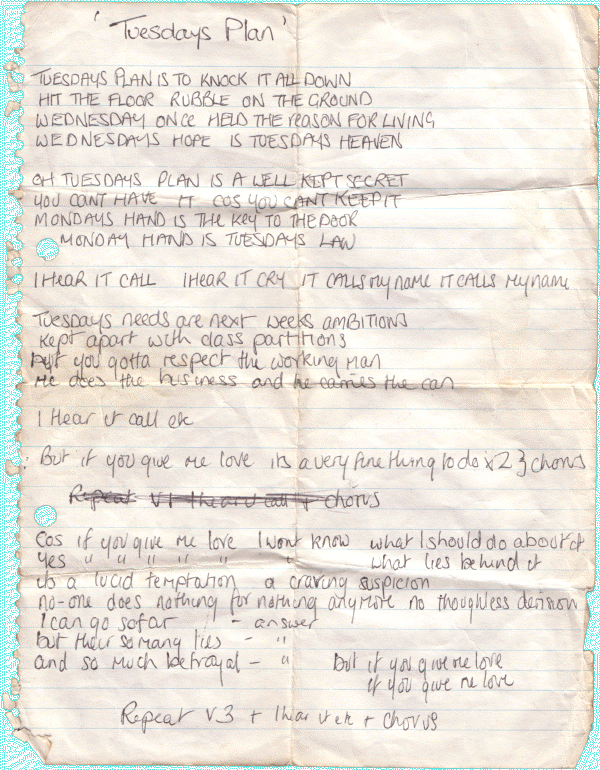 'Tuesdays Plan'
TUESDAYS PLAN IS TO KNOCK IT ALL DOWN
HIT THE FLOOR RUBBLE ON THE GROUND
WEDNESDAY ONCE HELD THE reason FOR LIVING
WEDNESDAYS HOPE IS TUESDAYS HEAVEN
OH TUESDAYS PLAN IS A WELL KEPT SECRET
YOU CANT HAVE IT COS YOU CANT KEEP IT
MONDAYS HAND IS THE KEY TO THE DOOR
MONDAY HAND IS TUESDAYS LAW
I HEAR IT CALL I HEAR IT CRY IT CALLS My name IT CALLS My name
Tuesdays needs are next weeks AMBITIONS
Kept apart with class partitions
but you gotta respect the working man
He does the business and he carries the can
I Hear it call etc
But if you give me love its a very fine thing to do x2 } chorus
Repeat V1 + I hear it call + chorus
Cos if you give me love I wont know what I should do about it
Yes " " " " " " what lies behind it
its a lucid temptation a craving suspicion
no-one does nothing for nothing anymore no thoughless decision
I can go so far " - answer
but their so many lies - "
and so much betrayal - "
But if you give me love
if you give me love
Repeat V3 + I hear it etc + Chorus